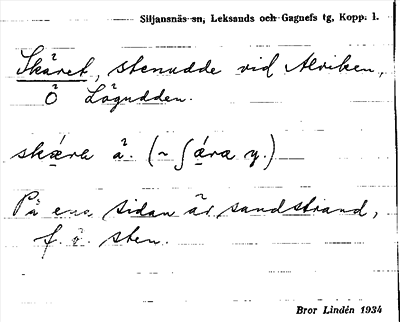 Siljansnäs sn, Leksands och Gagnefs tg, Kopp. l.
Skäret, stenudde vid Alviken,
Ö Lögudden.
På ena sidan är sandstrand,
f. ö. sten.
Bror Lindén 1934